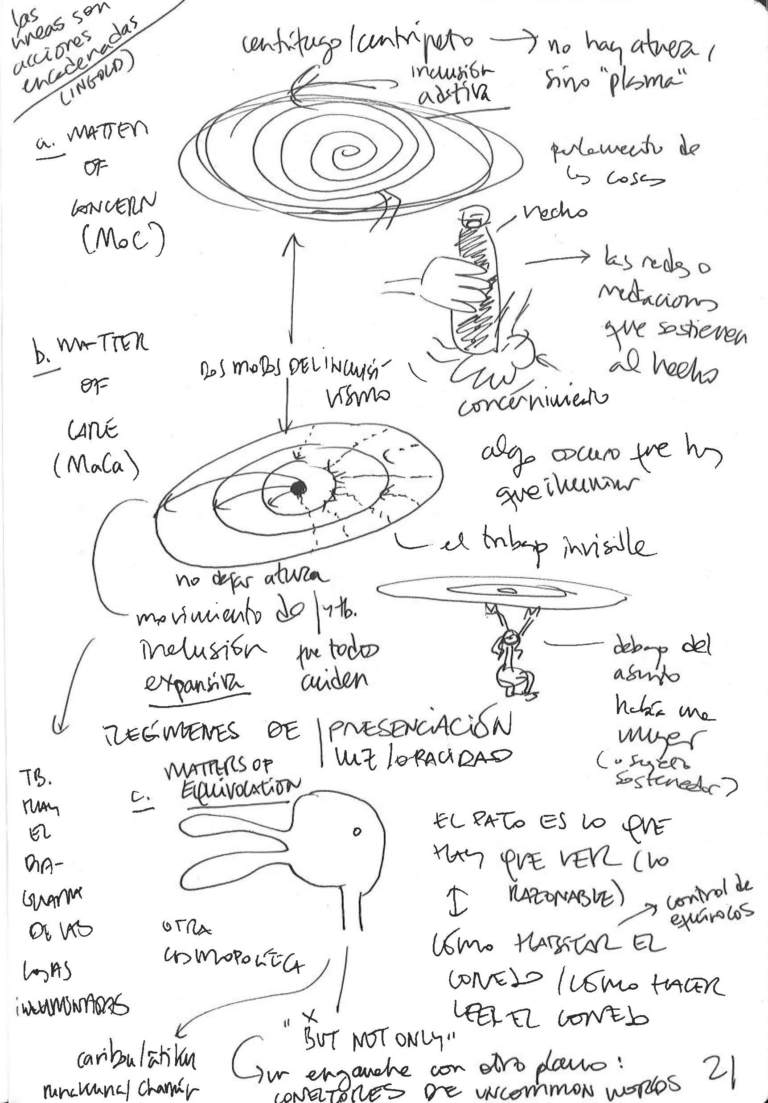 las
líneas son
acciones
encadenadas
(INGOLD)
centrífugo/centrípeto → no hay afuera,
sino "plasma"
inclusión
aditiva
a. MATTER
OF
CONCERN
(MoC)
parlamento de
las cosas
hecho
las redes o
mediaciones
que sostienen
al hecho
concernimiento
b. MATTER
OF
CARE
(MaCa)
DOS MODOS DEL INCLUSI-
VISMO
algo oscuro que hay
que iluminar
el trabajo invisible
no dejar afuera
movimiento de
inclusión
expansiva
/ytb.
que todos
cuiden
debajo del
asunto
había una
mujer
(o sujeto
sostenedor)
REGÍMENES DE
PRESENCIACIÓN
LUZ/OPACIDAD
TB.
HAY
EL
DIA-
GRAMA
DE LAS
COSAS
c. MATTERS OF
EQUIVOCATION
EL PATO ES LO QUE
HAY QUE VER (LO
RAZONABLE)
↕
CÓMO HABITAR EL
CONEJO / CÓMO HACER
LEER EL CONEJO
control de
equívocos
OTRA
COSMOPOLÍTICA
"BUT NOT ONLY"
un enganche con otro plano:
CONECTORES DE UNCOMMON WORLDS
caribou/atîku
runakuna/
21